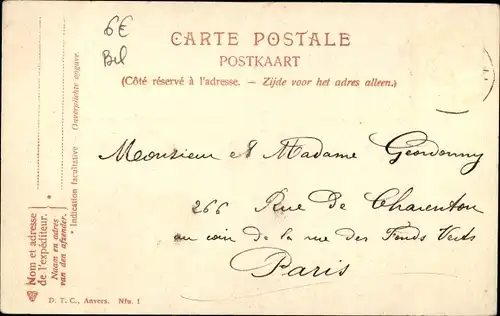 6€
Bel
CARTE POSTALE
POSTKAART
(Côté réservé à l'adresse. — Zijde voor het adres alleen.)
Monsieur et Madame
266 Rue De Charenton
au coin de la rue des Fonds Verts
Paris
Nom et adresse
de l'expéditeur.
Naam en adres
van den afzender.
*
* Indication facultative — Onverplichte opgave.
D. T. C., Anvers. Nfu. 1